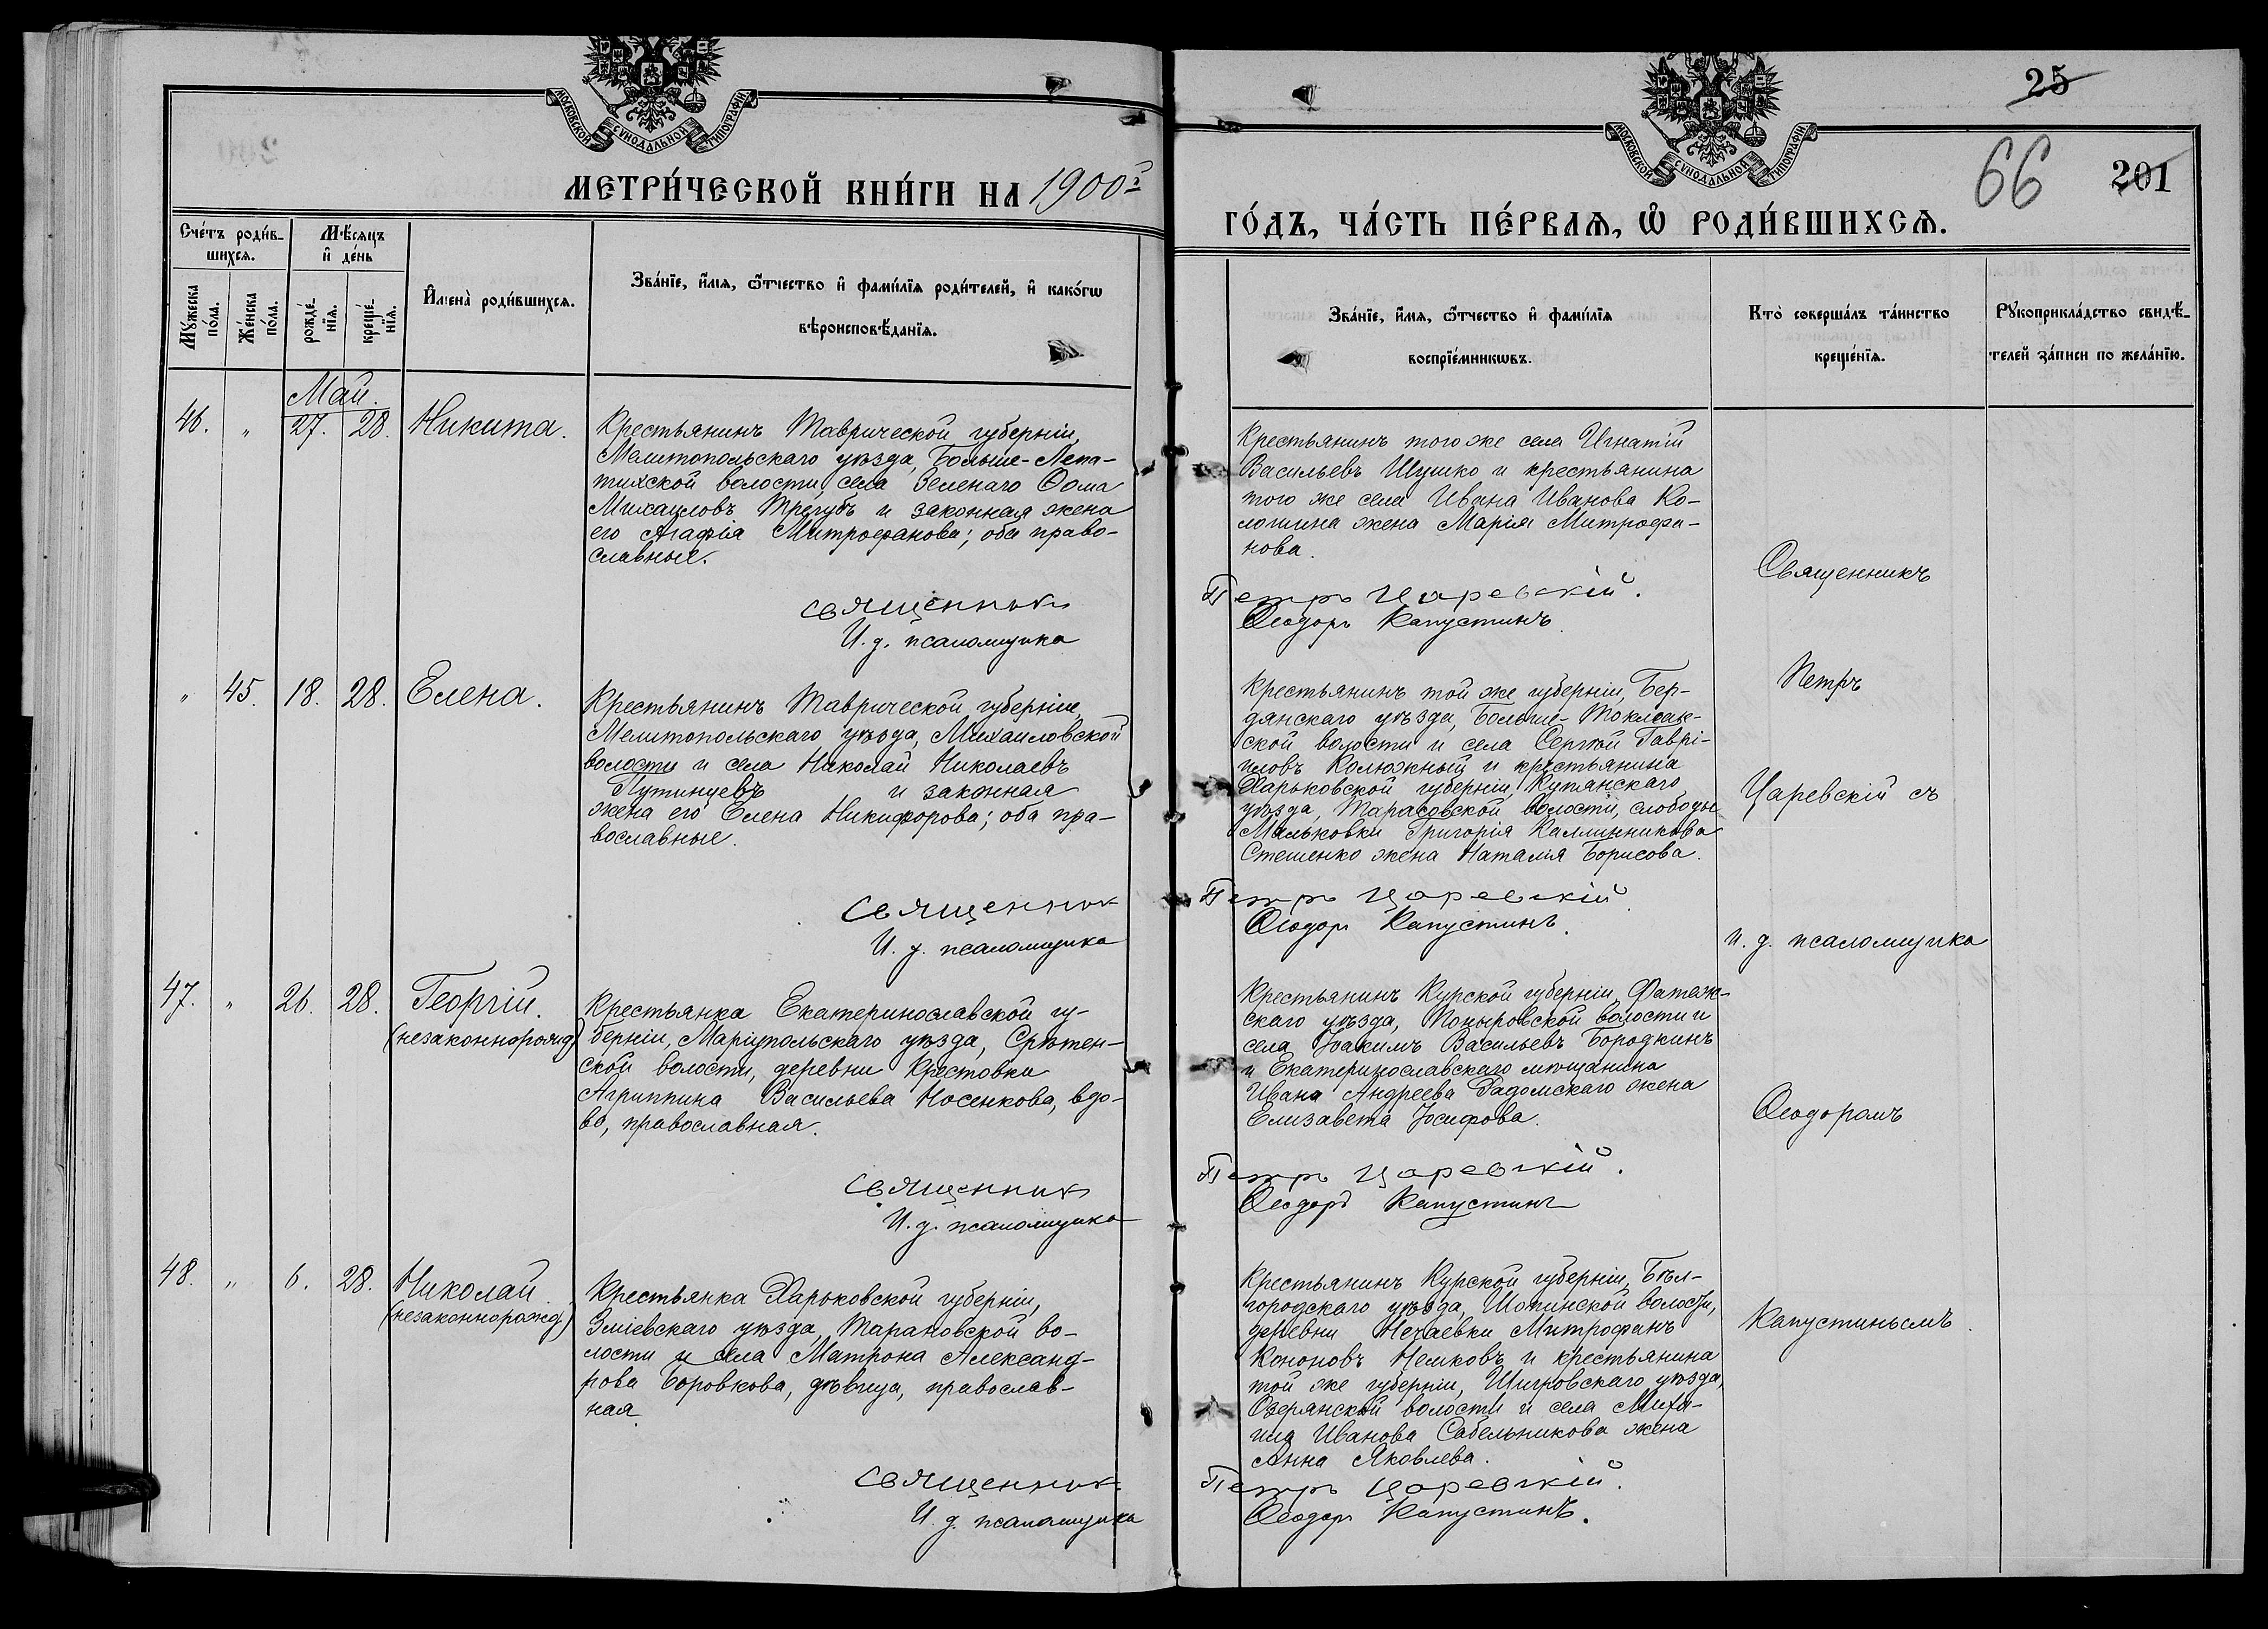 МОСКОВСКОЙ СѴНОДАЛЬНОЙ ТИПОГРАФІИ
МЕТРИ́ЧЕСКОЙ КНИ́ГИ НА 1900й
Сче́тъ роди́в-
шихся.
Мѣ́сяцъ
и҆ де́нь
Мꙋ́жеска
по́ла.
Же́нска
по́ла.
рожде́-
нїя.
креще́-
нїя.
И҆мена̀ роди́вшихся.
Зва́нїе, и҆́мя, ѻ҆́тчество и҆ фами́лїя роди́телей, и҆ како́гѡ
вѣроисповѣ́данїя.
Май.
46. " 27. 28. Никита.
Крестьянинъ Таврической губерніи,
Мелитопольскаго уѣзда, Больше-Лепа-
тихской волости, села Зеленаго Ѳома
Михаиловъ Трегубъ и законная жена
его Агафія Митрофанова; оба право-
славные.
священник
И. д. псаломщика
" 45. 18. 28. Елена.
Крестьянинъ Таврической губерніи,
Мелитопольскаго уѣзда, Михаиловской
волости и села Николай Николаевъ
Путинцевъ и законная
жена его Елена Никифорова; оба пра-
вославные.
священник
И. д. псаломщика
47. " 26. 28. Георгій.
(незаконнорожд)
Крестьянка Екатеринославской гу-
берніи, Маріупольскаго уѣзда, Срѣтен-
ской волости, деревни Крестовки
Агриппина Васильева Носенкова, вдо-
ва, православная.
священник
И. д. псаломщика
48. " 6. 28. Николай.
(незаконнорожд)
Крестьянка Харьковской губерніи,
Зміевскаго уѣзда, Тарановской во-
лости и села Матрона Александ-
рова Боровкова, дѣвица, православ-
ная.
священник
И. д. псаломщика
25
МОСКОВСКОЙ СѴНОДАЛЬНОЙ ТИПОГРАФІИ
66 201
ГО́ДЪ, ЧА́СТЬ ПЕ́РВАЯ, Ѡ҆ РОДИ́ВШИХСЯ.
Зва́нїе, и҆́мя, ѻ҆́тчество и҆ фами́лїя
воспрїе́мникѡвъ.
Кто̀ соверша́лъ та́инство
креще́нїя.
Рꙋкоприкла́дство свидѣ́-
телей за́писи по жела́нїю.
Крестьянинъ того же села Игнатій
Васильевъ Шушко и крестьянина
того же села Ивана Иванова Ко-
ломина жена Марія Митрофа-
нова.
Петръ Царевскій.
Ѳеодоръ Капустинъ.
Крестьянинъ той же губерніи, Бер-
дянскаго уѣзда, Больше-Токмак-
ской волости и села Сергѣй Гаврі-
иловъ Калюжный и крестьянина
Харьковской губерніи, Купянскаго
уѣзда, Тарасовской волости, слободы
Мальковки Григорія Каллинникова
Стешенко жена Наталія Борисова.
Петръ Царевскій
Ѳеодоръ Капустинъ.
Крестьянинъ Курской губерніи, Фатеж-
скаго уѣзда, Поныровской волости и
села Іоакимъ Васильевъ Бородкинъ
и Екатеринославскаго мѣщанина
Ивана Андреева Радомскаго жена
Елизавета Іосифова.
Петръ Царевскій.
Ѳеодоръ Капустинъ
Крестьянинъ Курской губерніи, Бѣл-
городскаго уѣзда, Шопинской волости,
деревни Нечаевки Митрофанъ
Кононовъ Немковъ и крестьянина
той же губерніи, Щигровскаго уѣзда,
Озерянской волости и села Миха-
ила Иванова Сабельникова жена
Анна Яковлева.
Петръ Царевскій.
Ѳеодоръ Капустинъ.
Священникъ
Петръ
Царевскій съ
и. д. псаломщика
Ѳеодоромъ
Капустинымъ.